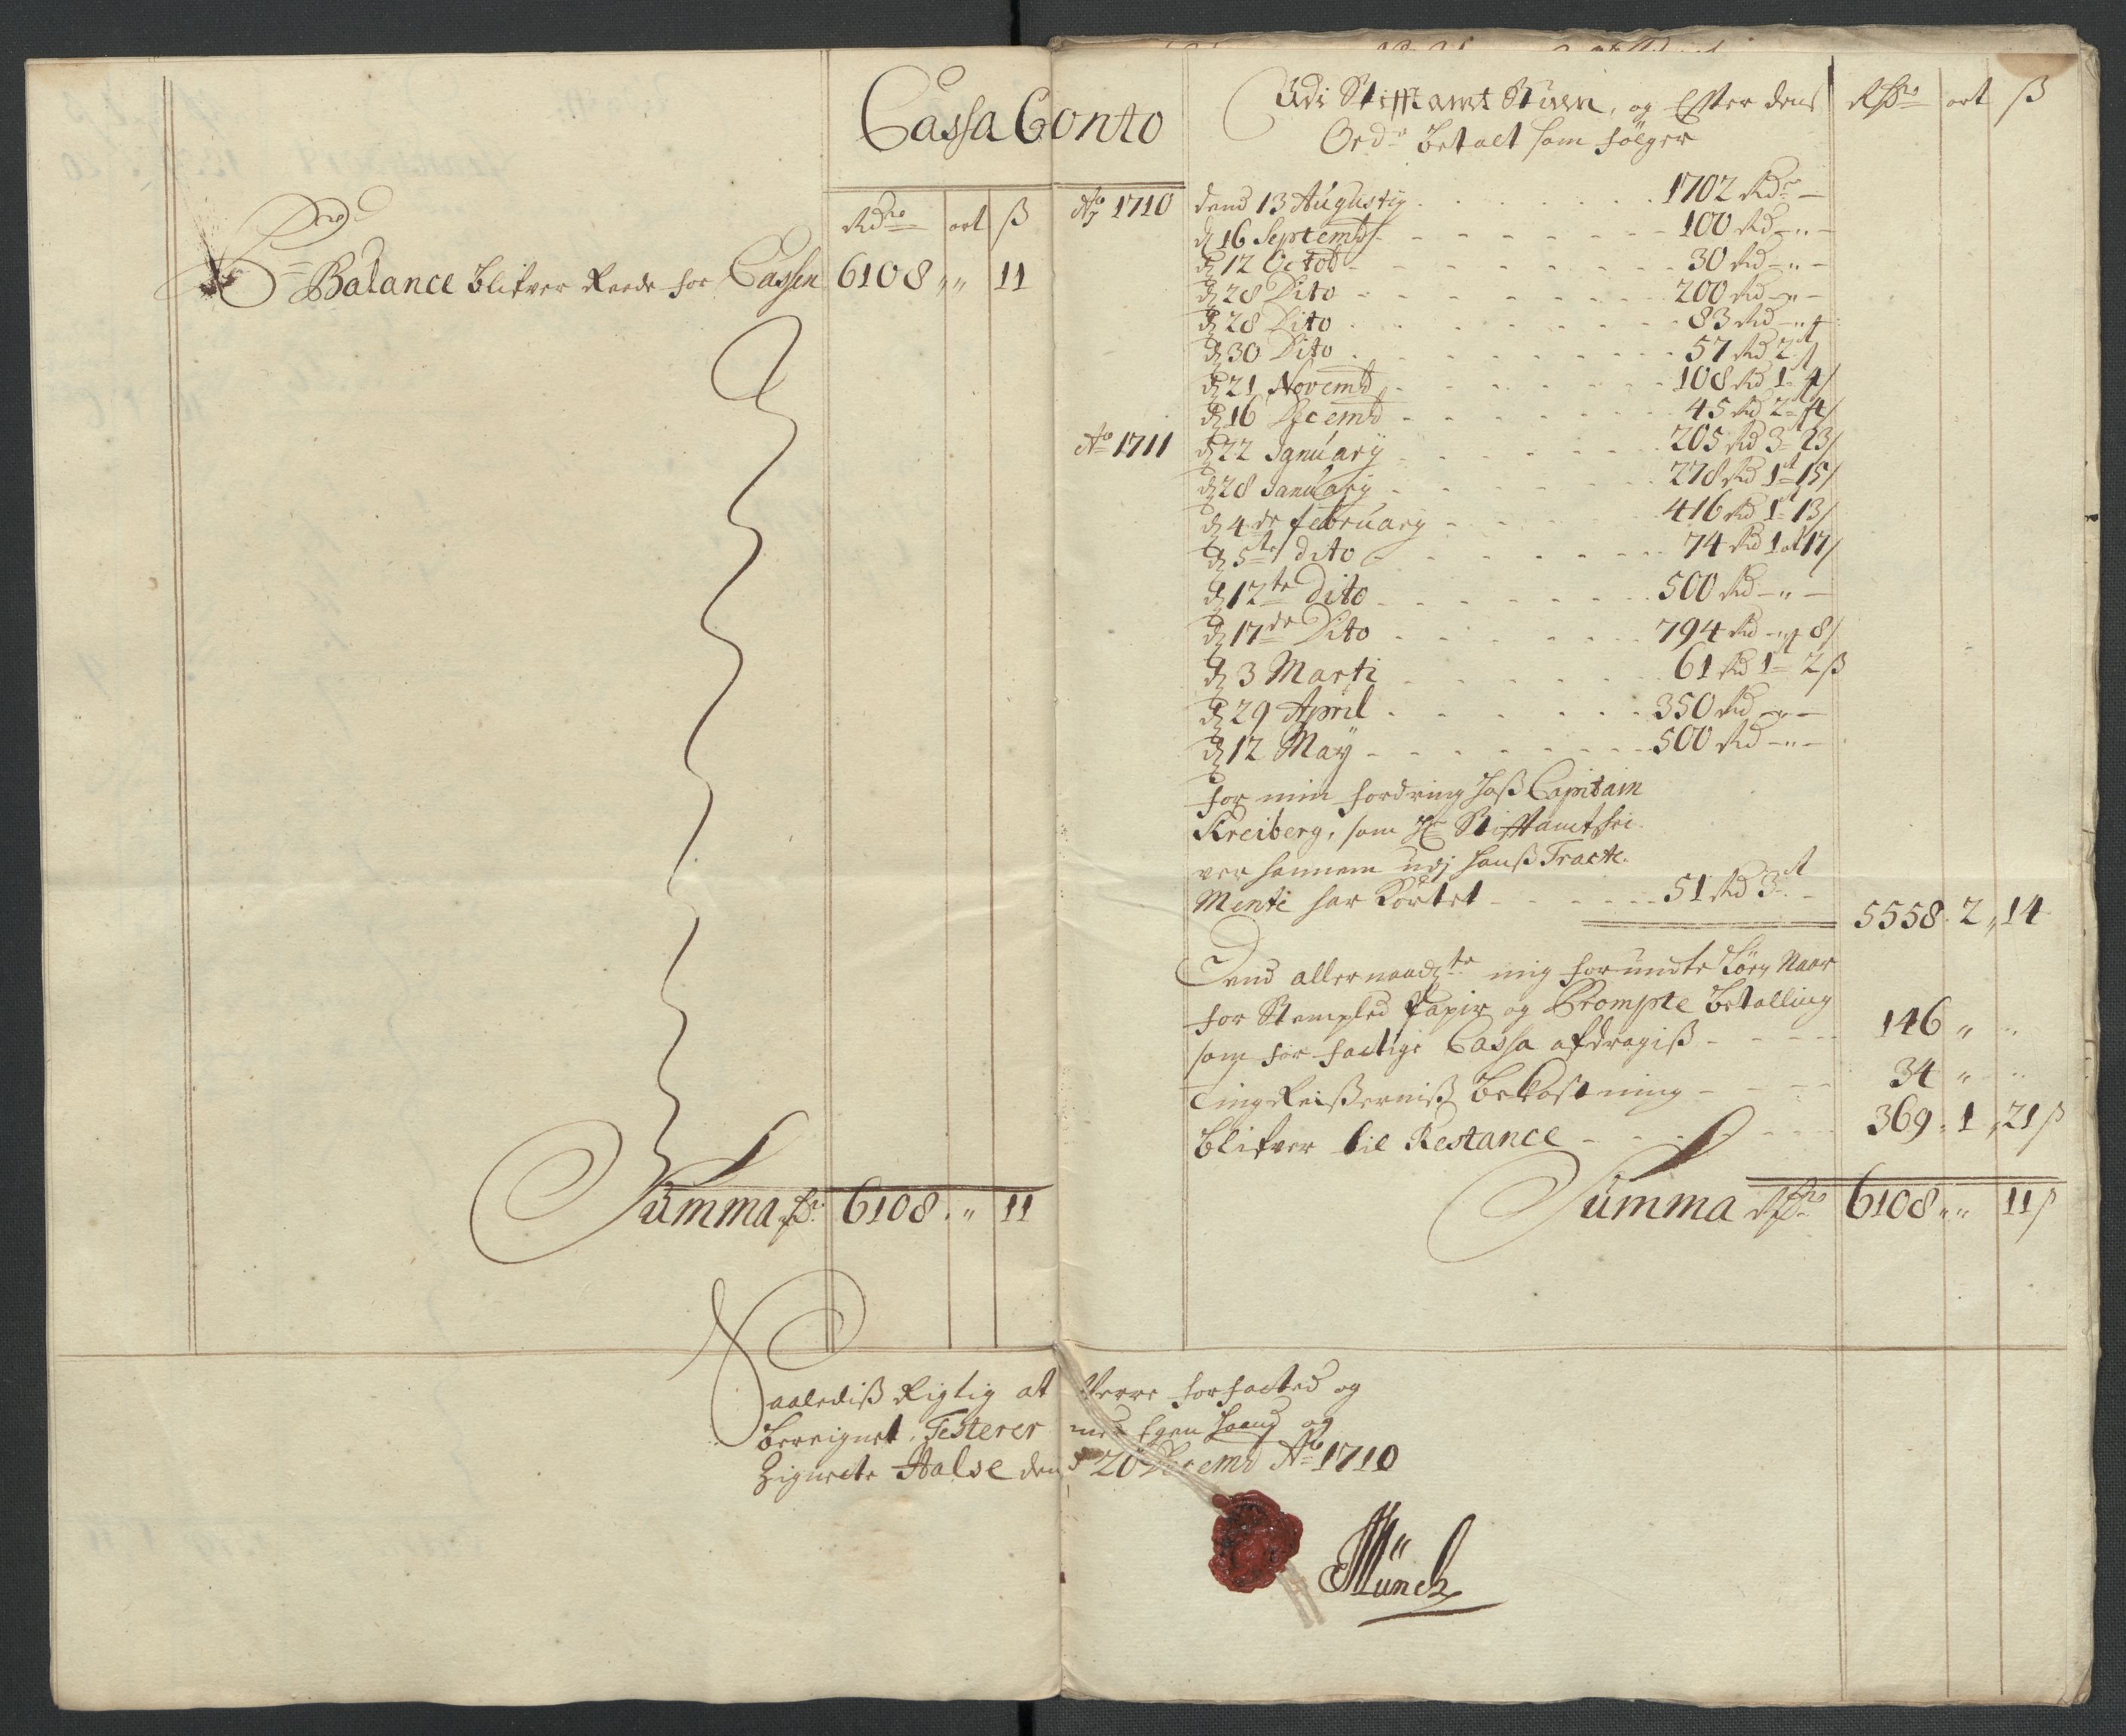 Cassa Conto
Rdr ort ß
Pr Balance blifver Reede for Cassen 6108 „ „ 11
Summa Rdr 6108 „ „ 11
Udi Stifftamt Stuen, og Efter dens Rdr ort ß
Ordre betalt som følger
Ao 1710 dend 13 Augusty 1702 Rdr —
d 16 Septembr 100 Rd — „ —
d 12 Octob 30 Rd — „ —
d 28 Dito 200 Rd — „ —
d 28 Dito 83 Rd —
d 30 Dito 57 Rd 2
d 21 Novemb 108 Rd 1 4/
d 16 Decemb 45 Rd 2 4/
Ao 1711 d 22 January 205 Rd 3 23/
d 28 January 278 Rd 1 15/
d 4de february 416 Rd 1 13/
d 5te dito 74 Rd 1 ort 17/
d 12te Dito 500 Rd — „ —
d 17de Dito 794 Rd — „ 8/
d 3 Marti 61 Rd 1 2 ß
d 29 April 350 Rd — „ —
d 12 Maÿ 500 Rd — „ —
for min fordring hoß Capitain
Kreiberg, som Hr Stifftamtskri
ver hannem udj hanß Tracte
Mente har kortet 51 Rd 3 —
5558 „ 2 „ 14
Dend allernaadte mig forundte
for Stempled Papir og Prompte betalling
som for Cassa afdragiß 146 „ „
TingReißerniß bekostning 34 „ „
blifver til Restance 369 „ 1 „ 21 ß
Summa Rdr 6108 „ „ 11 ß
Saalediß Rigtig at Verre forfatted og
bereignet, Testerer med Egen Haand og
Zignete Halse dend 20 Decemb Ao 1710
Münch